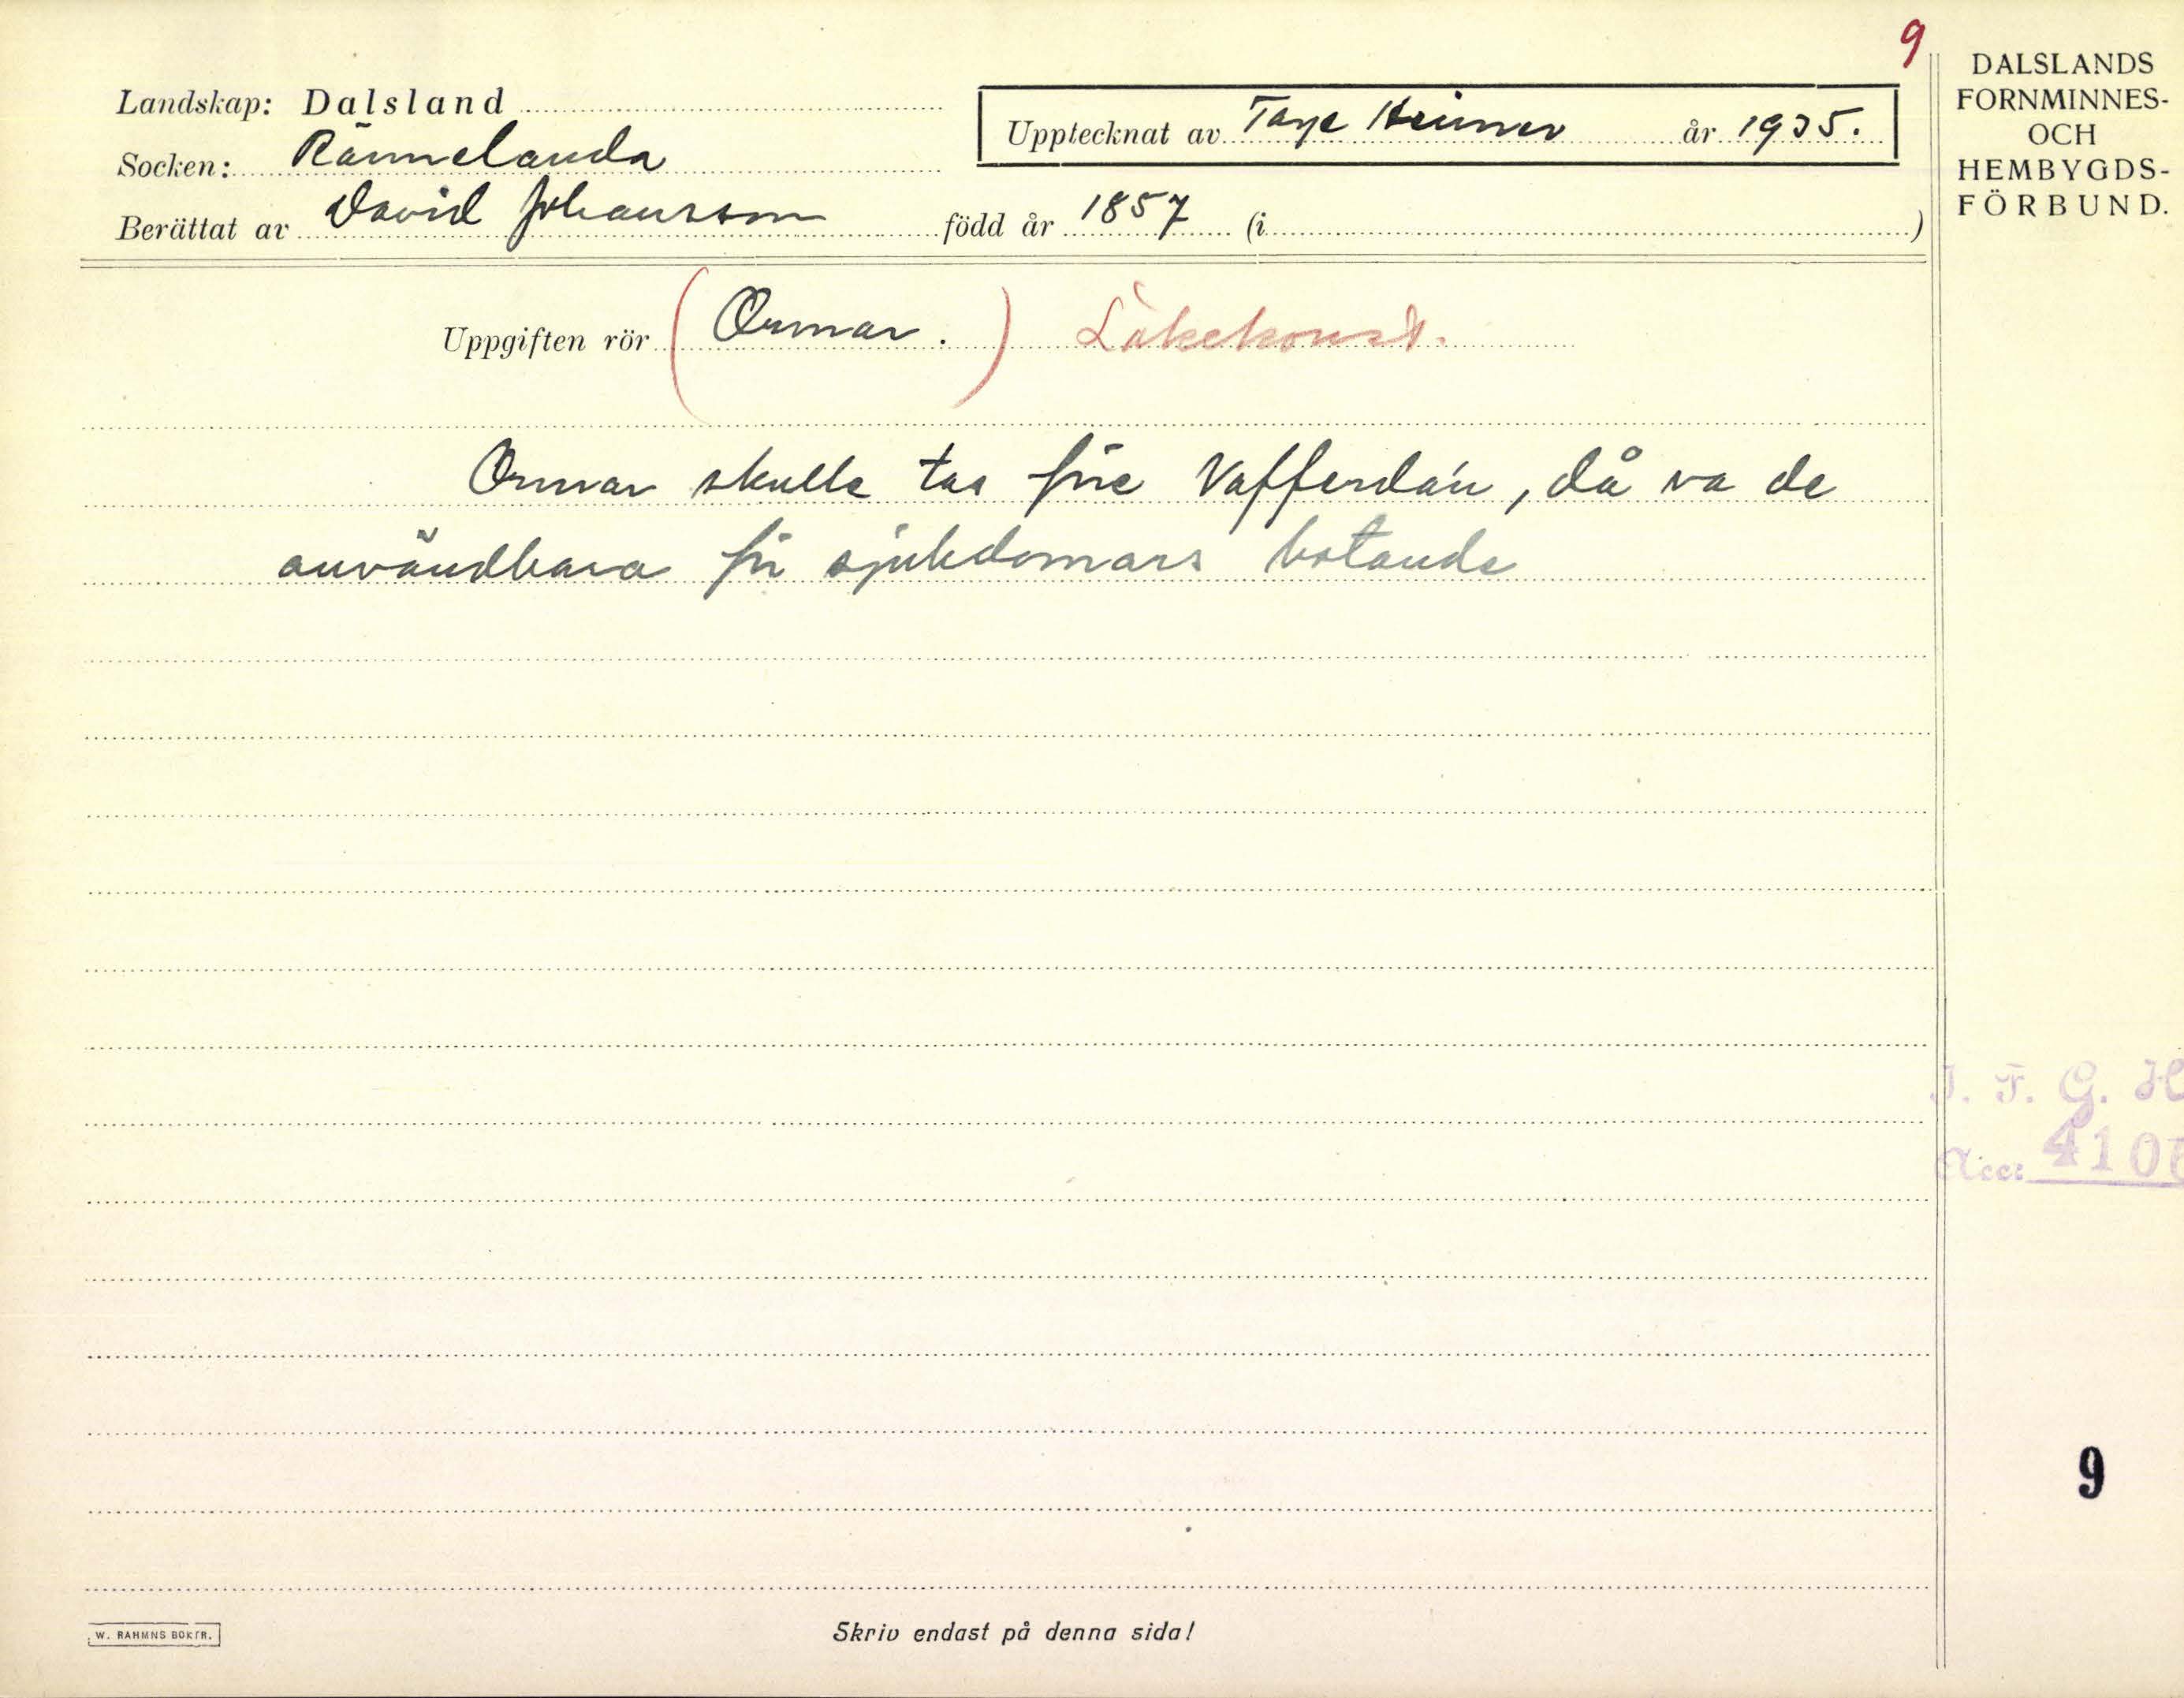 9
DALSLANDS
FORNMINNES-
OCH
HEMBYGDS-
FÖRBUND.
Landskap: Dalsland
Upptecknat av Tage Heimer år 1935.
Socken: Rännelanda
Berättat av David Johansson född år 1857 (i )
Uppgiften rör (Ormar.) Läkekonst.
Ormar skulle tas före Vafferdán, då va de
användbara för sjukdomars botande
I. F. G. H
Acc: 410
9
W. RAHMNS BOKTR.
Skriv endast på denna sida!